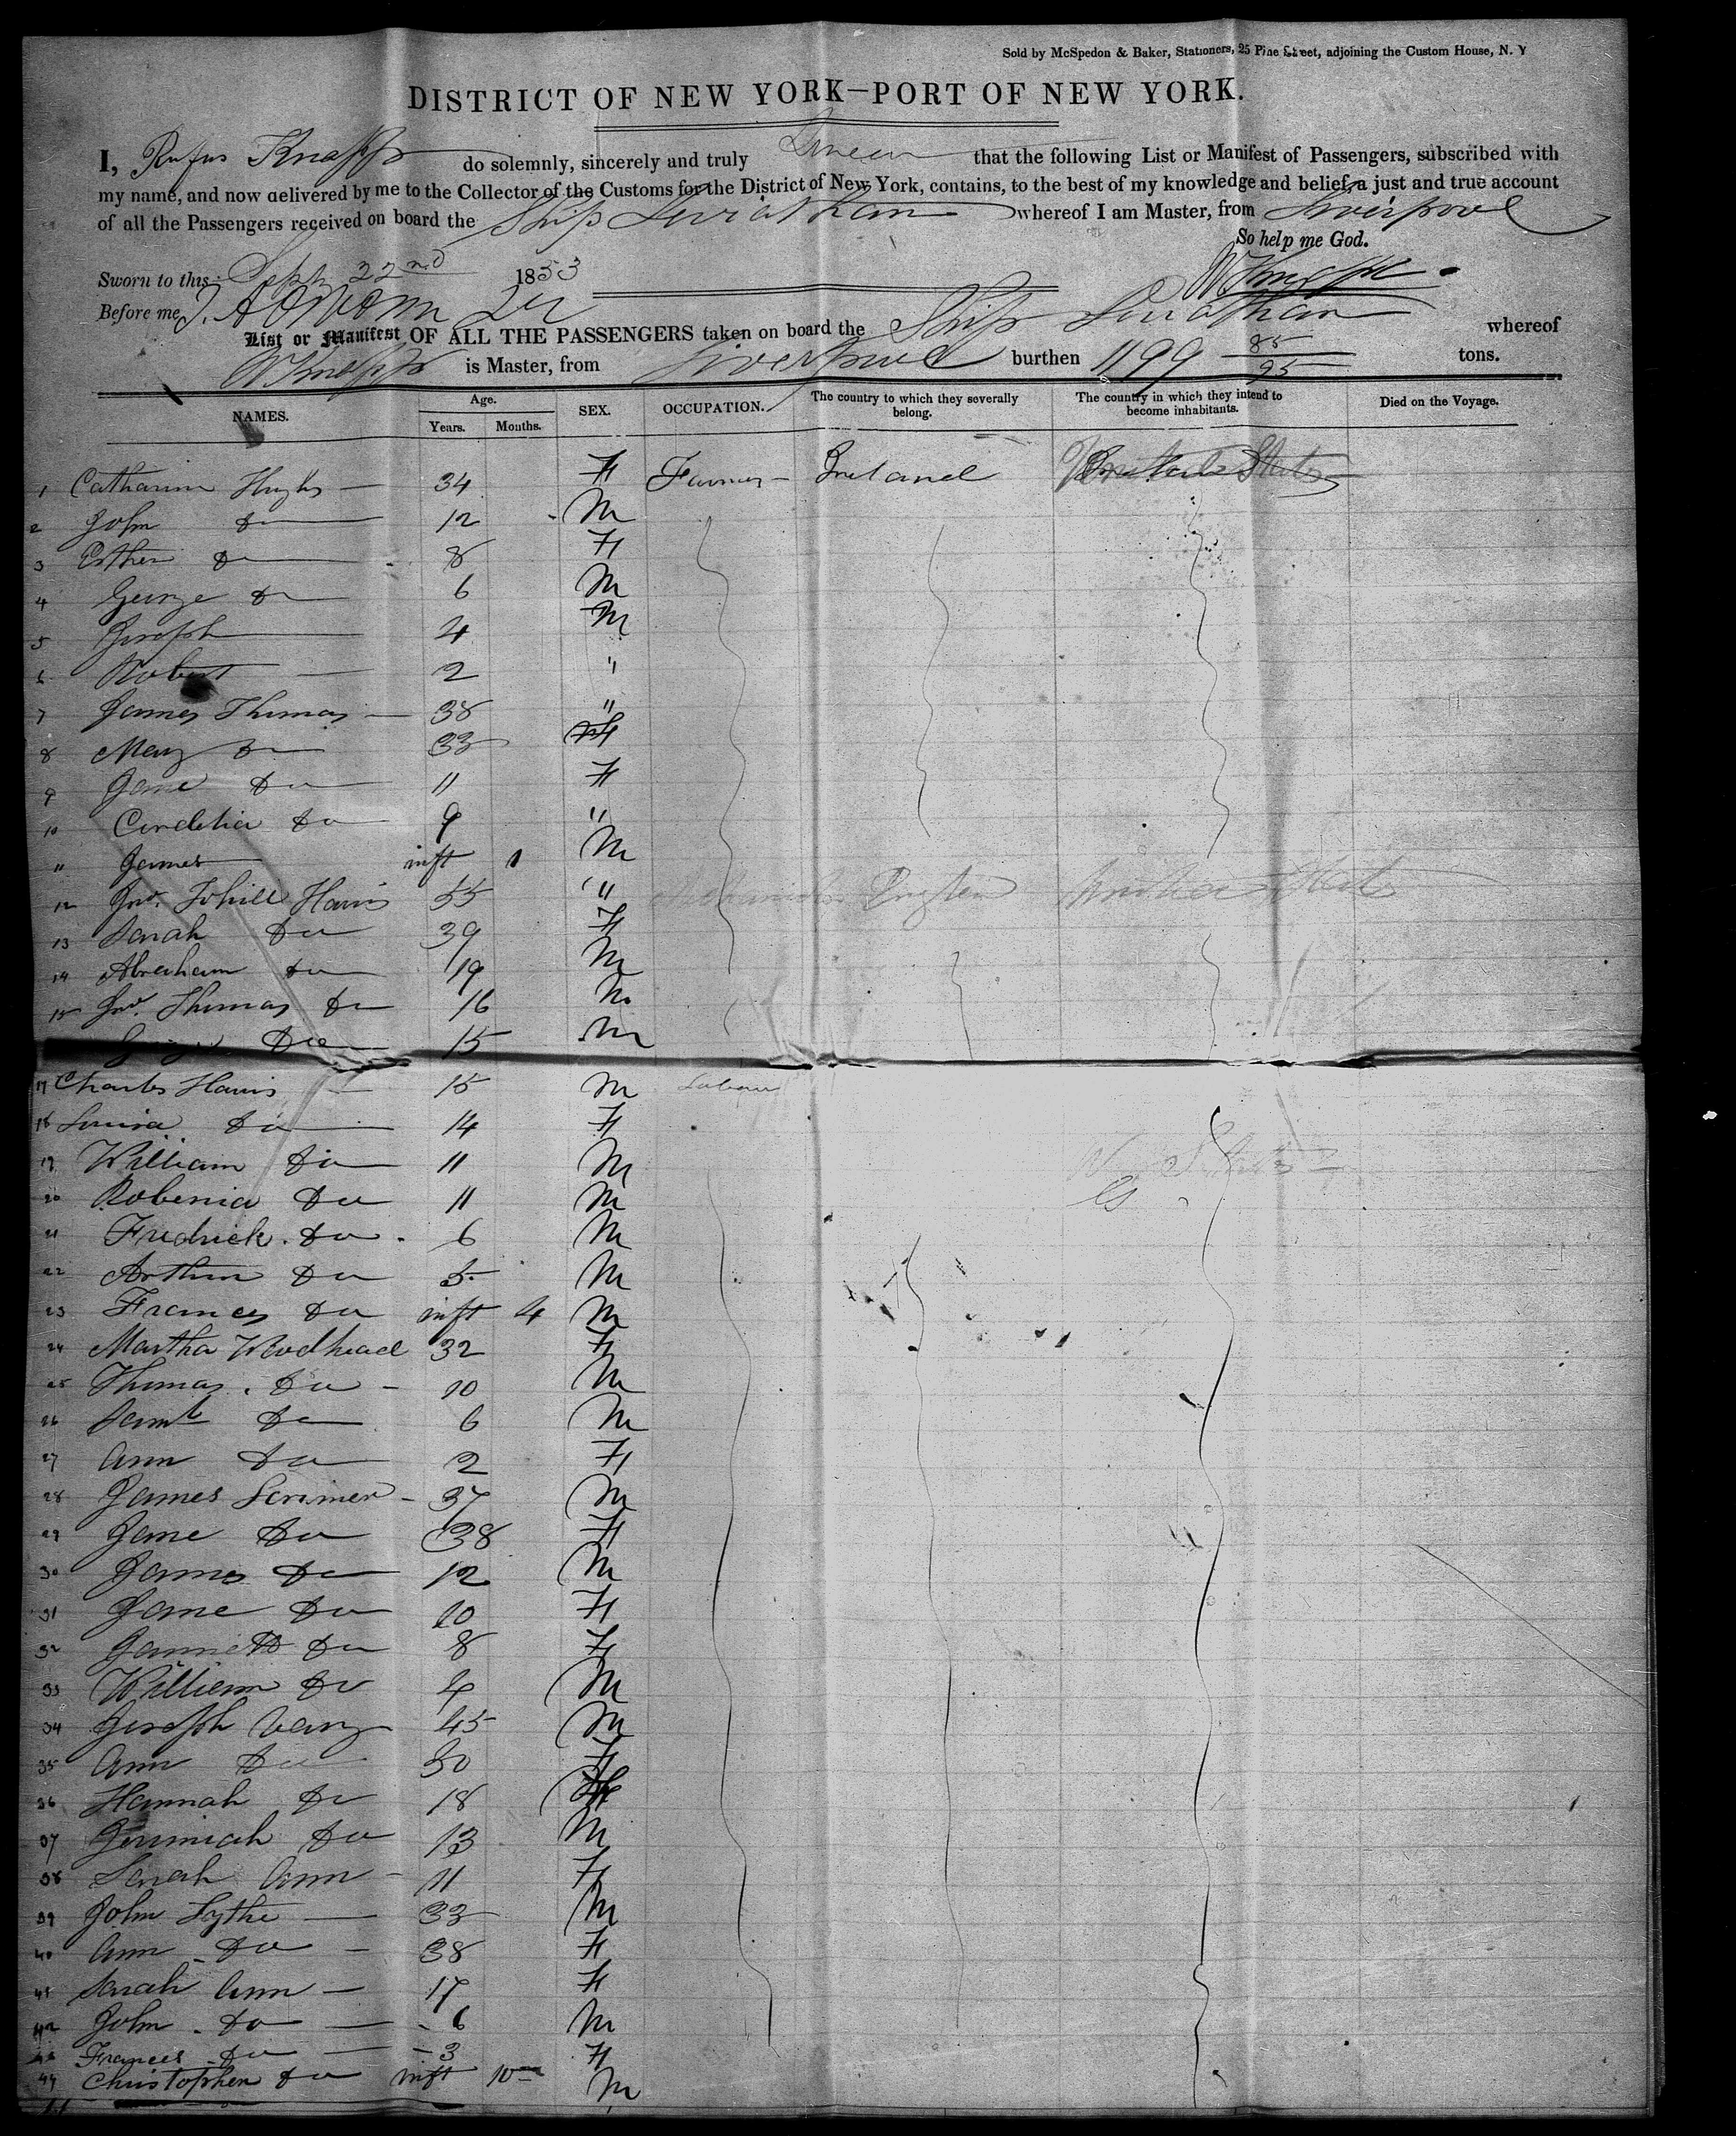 Sold by McSpedon & Baker, Stationers, 25 Pine Street, adjoining the Custom House, N. Y
DISTRICT OF NEW YORK—PORT OF NEW YORK.
I, Rufus Knapp do solemnly, sincerely and truly Swear that the following List or Manifest of Passengers, subscribed with
my name, and now delivered by me to the Collector of the Customs for the District of New York, contains, to the best of my knowledge and belief, a just and true account
of all the Passengers received on board the Ship Leviathan whereof I am Master, from Liverpool
So help me God.
Sworn to this Sept 22nd 1853
R Knapp
Before me
List or Manifest OF ALL THE PASSENGERS taken on board the Ship Leviathan whereof
R Knapp is Master, from Liverpool burthen 1199 85/95 tons.
NAMES. Age. Years. Months. SEX. OCCUPATION. The country to which they severally belong. The country in which they intend to become inhabitants. Died on the Voyage.
1 Catharine Hughs 34 F Farmer Ireland United States
2 John Do 12 M
3 Esther Do 8 F
4 George Do 6 M
5 Joseph 4 M
6 Robert 2 "
7 James Thomas 38 "
8 Mary Do 33 F
9 Jane Do 11 F
10 Cordelia Do 9 "
11 James inft 1 M
12 Jno. Harris 55 " England United States
13 Sarah Do 39 F
14 Abraham Do 19 M
15 Jno. Thomas Do 16 M
Do 15 M
17 Charles Harris 15 M Labour
18 Louisa Do 14 F
19 William Do 11 M
20 Robenia Do 11 M
21 Fredrick Do 6 M
22 Arthur Do 5 M
23 Frances Do inft 4 M
24 Martha Woodhead 32 F
25 Thomas Do 10 M
26 Saml Do 6 M
27 Ann Do 2 F
28 James Scrimer 37 M
29 Jane Do 38 F
30 James Do 12 M
31 Jane Do 10 F
32 Jannett Do 8 F
33 William Do 4 M
34 Joseph Vary 45 M
35 Ann Do 30 F
36 Hannah Do 18 F
37 Jerimiah Do 13 M
38 Sarah Ann 11 F
39 John Lythe 33 M
40 Ann Do 38 F
41 Sarah Ann 17 F
42 John Do 6 M
43 Frances Do 3 F
44 Christopher Do inft 10 M